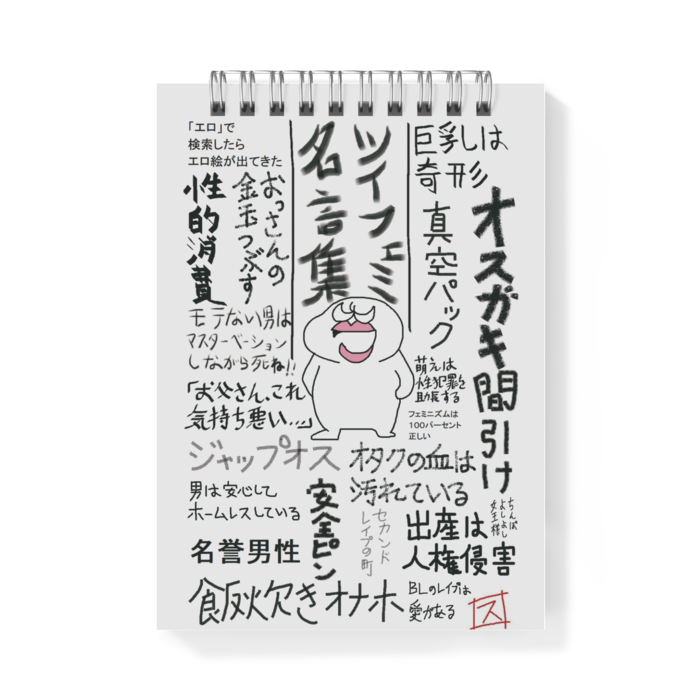 ツイフェミ
名言集
「エロ」で
検索したら
エロ絵が出てきた
おっさんの
金玉つぶす
性的消費
モテない男は
マスターベーション
しながら死ね!!
「お父さん、これ
気持ち悪い…」
巨乳は
奇形
真空パック
オスガキ間引け
萌えは
性犯罪を
助長する
フェミニズムは
100パーセント
正しい
ジャップオス
オタクの血は
汚れている
男は安心して
ホームレスしている
安全ピン
セカンド
レイプの町
ちんぽ
よしよし
女王様
名誉男性
出産は
人権侵害
飯炊きオナホ
BLのレイプは
愛がある
ス